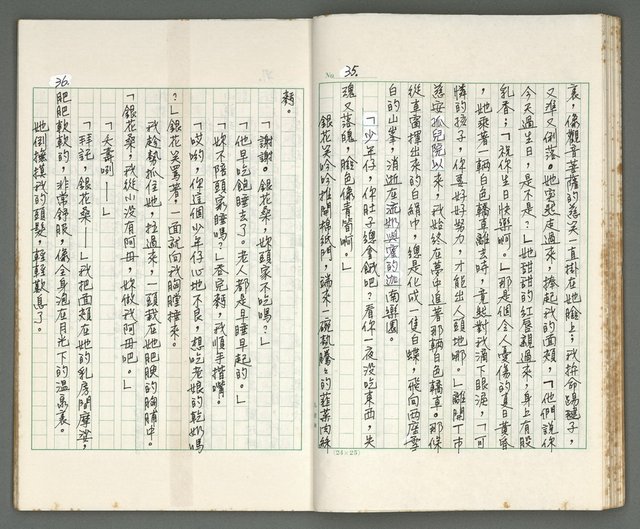 No. 35.
裏，像觀音菩薩的慈笑一直掛在她臉上；我拚命踢毽子，
又難又倒落。她突然走過來，捧起我的面頰，「他們說你
今天過生日，是不是？」她甜甜的紅唇親過來，身上有股
乳香；「祝你生日快樂啊。」那是個令人憂傷的夏日黃昏
，她乘著一輛白色轎車離去時，竟然對我滴下眼淚，「可
憐的孩子，你要好好努力，才能出人頭地哪。」離開丁市
慈安孤兒院以來，我始終在夢中追著那輛白色轎車。那條
從車窗揮出來的白絹中，總是化成一隻白蝶，飛向兩座雪
白的山峯，消逝在流奶與蜜的迦南樂園。
「少年仔，你肚子總會餓吧？看你一夜沒吃東西，失
魂又落魄，臉色像青笛啊。」
銀花笑吟吟推開棉紙門，端來一碗熱騰騰的韮菜肉絲
(24×25)
36.
麵。
「謝謝。銀花桑，妳頭家不吃嗎？」
「他早吃飽睡去了。老人都是早睡早起的。」
「妳不陪頭家睡嗎？」吞完麵，我順手揩嘴。
「哎喲，你這個少年仔心地不良，想吃老娘的乾奶嗎
？」銀花笑罵著，一面就向我胸膛捶來。
我趁勢抓住她，拉過來，一頭栽在她肥腴的胸脯中。
「銀花桑，我從小沒有阿母，妳做我阿母吧。」
「夭壽唎——」
「拜託，銀花桑——」我把面頰在她的乳房間摩娑，
肥肥軟軟的，非常舒服，像全身泡在月光下的溫泉裏。
她倒撫摸我的頭髮，輕輕歎息了。